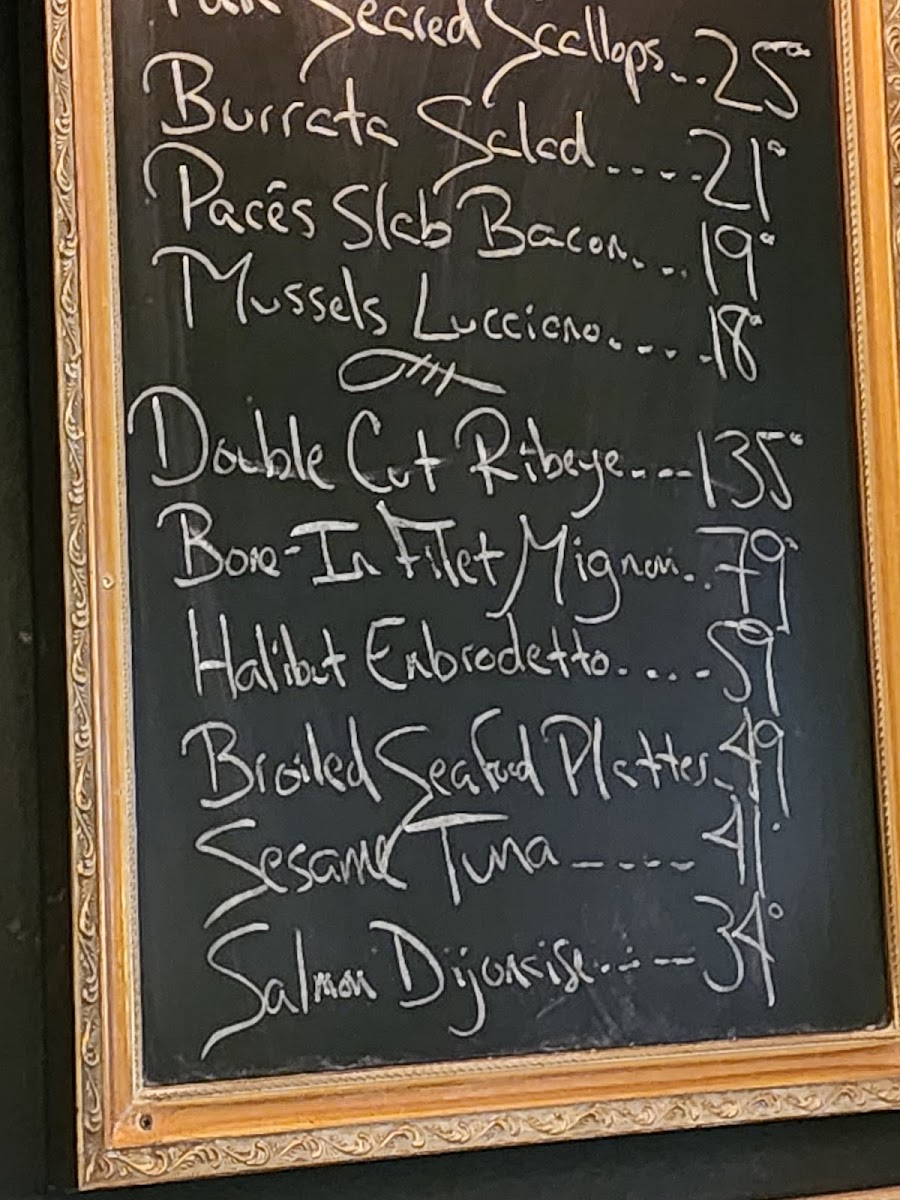 Pan Seared Scallops...25⁰⁰
Burrata Salad.....21⁰
Pacês Slab Bacon....19⁰
Mussels Lucciano.....18⁰
Double Cut Ribeye....135⁰
Bone-In Filet Mignon..79⁰
Halibut Enbrodetto.....59
Broiled Seafood Platter.49
Sesame Tuna.....41⁰
Salmon Dijonaise.....34⁰